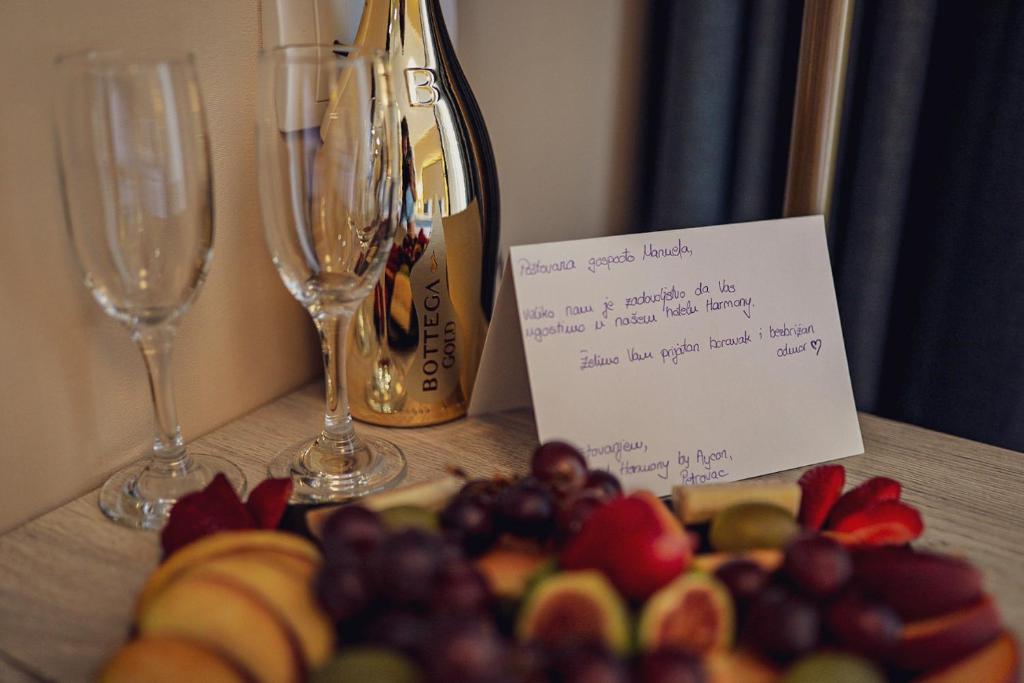 B
BOTTEGA
GOLD
Poštovana gospođo Manuela,
Veliko nam je zadovoljstvo da Vas
ugostimo u našem hotelu Harmony.
Želimo Vam prijatan boravak i bezbrižan
odmor ♡
štovanjem,
Harmony by Aycon,
Petrovac